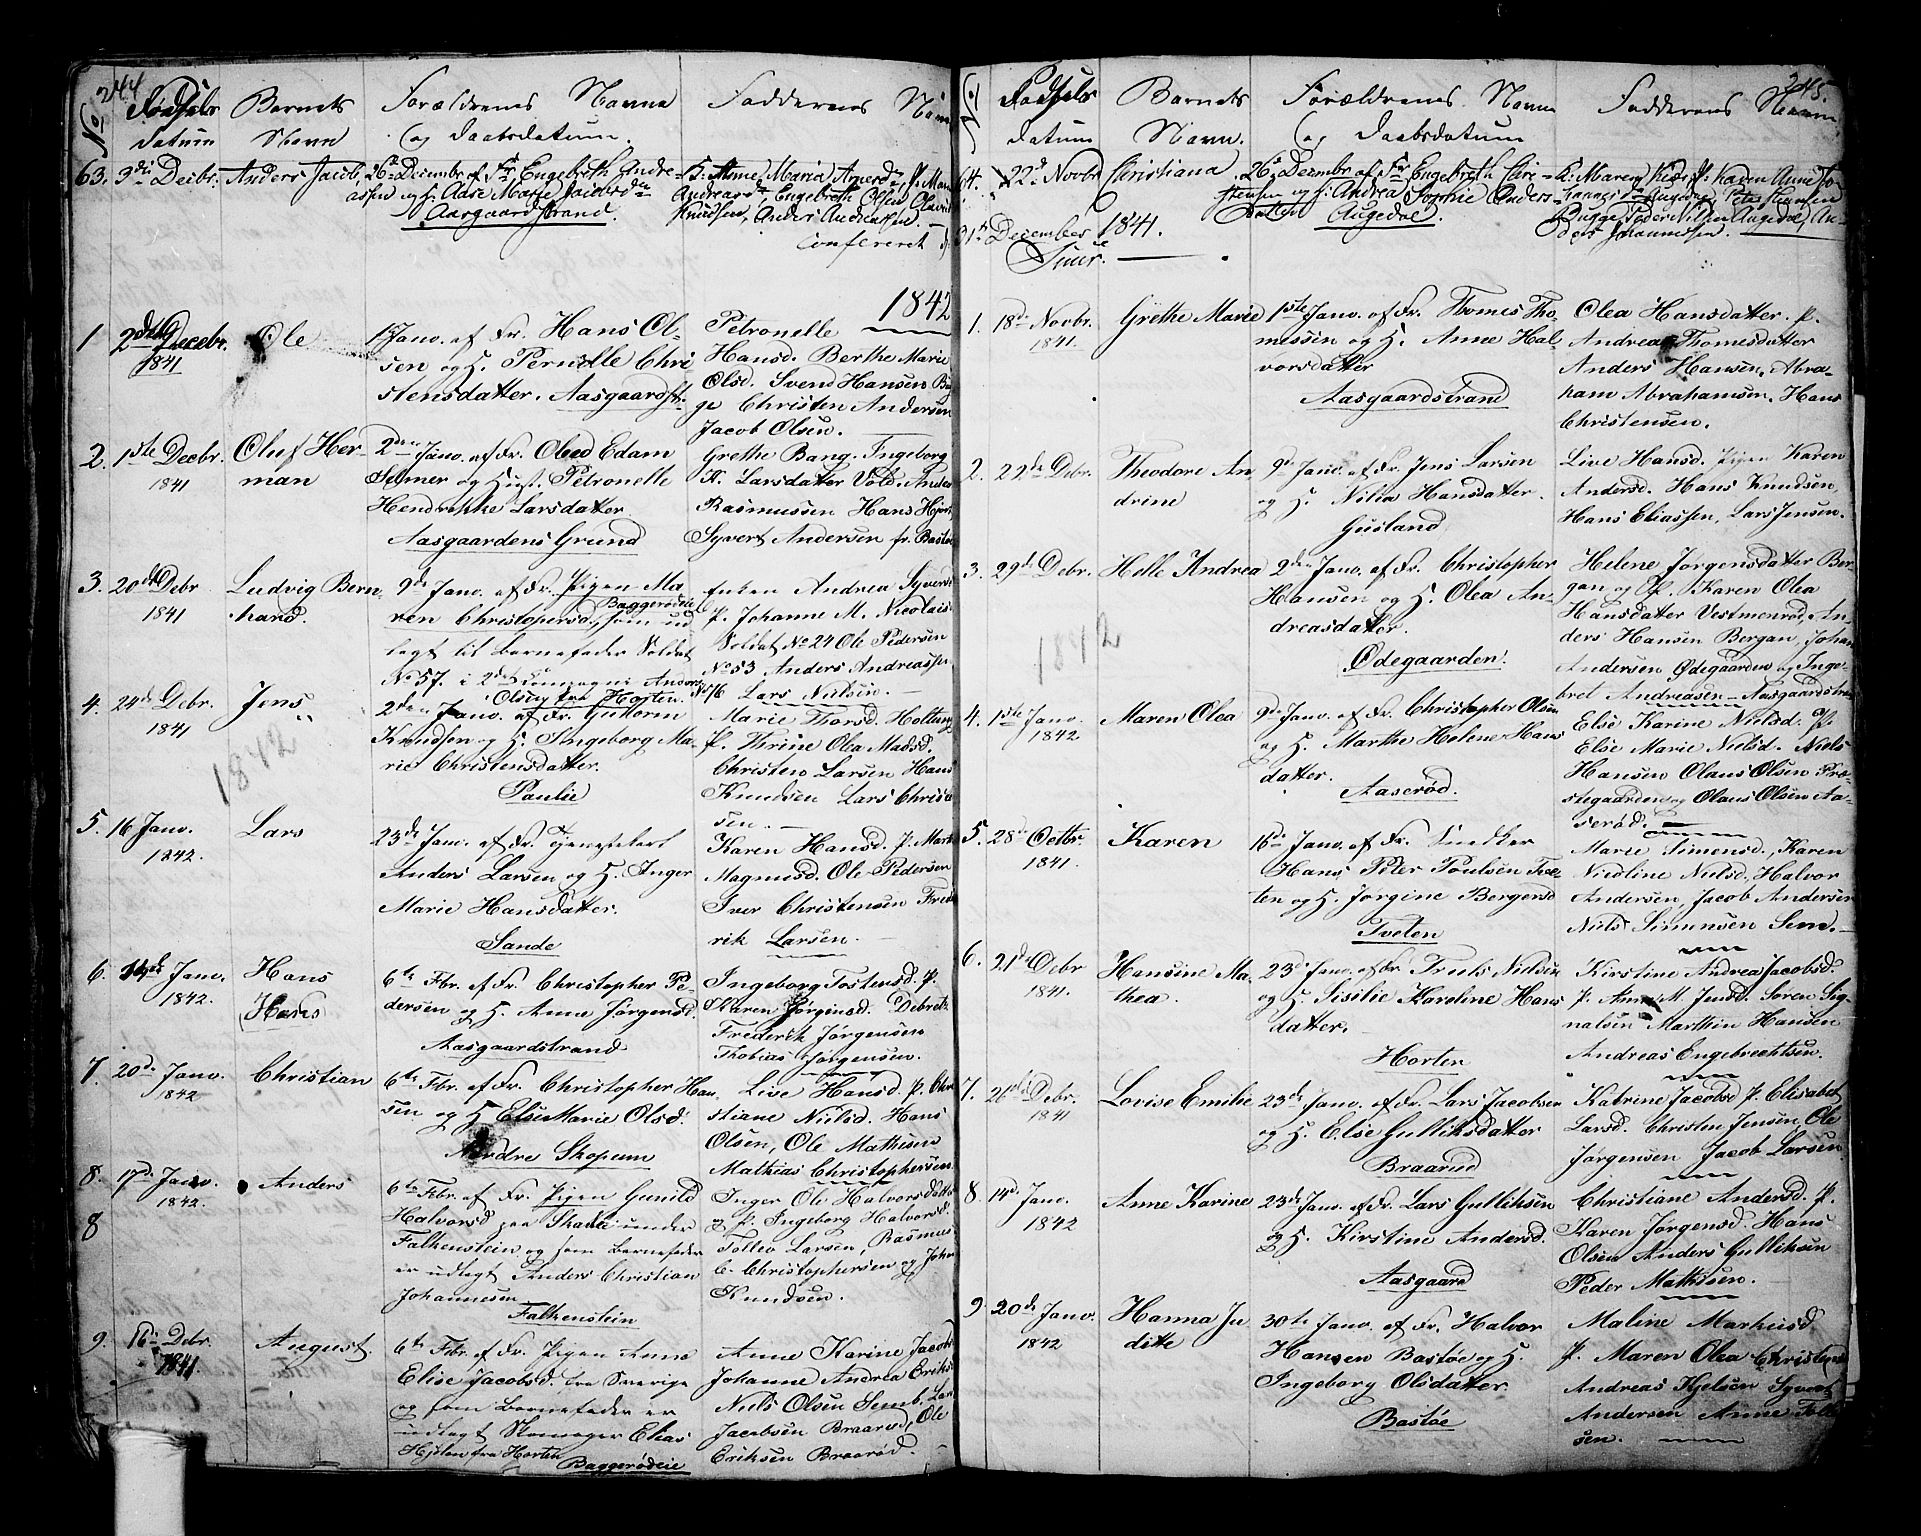 244
No.
Fødsels Datum
Barnets Navn
Forældrenes Navne og Daabsdatum.
Faddernes Navn
63. 3die Decbr. Anders Jacob, 26de Decembr af Fr Engebreth Andre-
assen og H. Aase Marie Jacobsd
Aasgaardstrand.
Anne Maria
Engebreth Olsen
Knudsen, Anders Andreassen
Confereret
1842
1 2den Decebr. 1841
Ole
1ste Janv. af Fr. Hans Ol-
sen og H. Pernelle Chri-
stensdatter. Aasgaardstr.
Petronelle
Hansd. Berthe Marie
Olsd. Svend Hansen Bug
ge Christen Andersen
Jacob Olsen.
2. 1ste Decbr. 1841
Oluf Her-
man
2den Janv. af Fr. Obed Edam
Selmer og Hust. Petronelle
Hendrikke Larsdatter
Aasgaardens Grund
Grethe Bang. Ingeborg
K. Larsdatter Vold. Anders
Rasmussen Hans Hjort
Syvert Andersen fr. Bastøe
3. 20de Debr 1841
Ludvig Bern
hard.
9de Janv. af Fr. Pigen Ma-
Baggerødeie
ren Christophersd. som ud
lagt til Barnefader Soldat
No 57. i 2det Compagni Anders
Olsen fra Horten
Enken Andrea Syverts
P. Johanne M. Nicolais
Soldat No 24 Ole Pedersen
No 53 Anders Andreassen
No 76 Lars Nielsen.
4. 24de Debr. 1841
Jens
2den Janv. af Fr. Guttorm
Knudsen og H. Ingeborg Ma-
rie Christensdatter.
Paulie
Marie Thorsd. Holtung
P. Thrine Olea Madsd.
Christen Larsen Hans
Knudsen Lars Christen
sen.
1842
5. 16 Janv. 1842.
Lars
23de Janv. af Fr. Tjenestekarl
Anders Larsen og H. Inger
Marie Hansdatter.
Sande
Karen Hansd. P. Marthe
Magnusd. Ole Pedersen
Iver Christensen Fred
rik Larsen.
6. Janv. 1842.
Hans
(Hans
6te Fbr. af Fr. Christopher Pe-
dersen og H. Anne Jørgensd.
Aasgaardstrand
Ingeborg Tostensd. P.
Karen Jørgensd.
Frederik Jørgensen
Thobias Jørgensen.
7. 20de Janv. 1842
Christian
6te Fbr. af Fr. Christopher Han
sen og H Else Marie Olsd.
Nordre Skopum
Live Hansd. P. Chri
stiane Nielsd. Hans
Olsen, Ole Mathisen
Mathias Christophersen
8. 17de Janv. 1842.
8
Anders
6te Fbr. af Fr. Pigen Gunild
Halvorsd paa Skada under
Falkenstein og som Barnefader
er udlagt Anders Christian
Johannesen
Falkenstein
Inger Ole Halvorsdatter
og P. Ingeborg Halvorsd.
Tollev Larsen, Rasmus
C. Christophersen og Johan
Knudsen.
9. 16de Debr. 1841.
August.
6te Fbr. af Fr. Pigen Anna
Elise Jacobsd. fra Sverige
og som Barnefader er
udlagt Skomager Elias
Hjelm fra Horten
Baggerødeie
Anne Karine Jacobs
Johanne Andrea Eriks
Niels Olsen Semb. Lars
Jacobsen Braarød, Ole
Eriksen Braarød.
245.
No.
Fødsels Datum
Barnets Navn.
Forældrenes Navn og Daabsdatum
Faddernes Navn
64. 22de Novbr Christiana
26de Decembr af Fr Engebreth Chri-
stensen og H. Andrea Sophie Anders-
datter
Augedal
K. Maren P. Karen Anne
Peter Hansen
Bugge Peder Nilsen Augedal, An-
ders Johannessen.
31te December 1841.
Suur.
1. 18de Novbr. 1841.
Grethe Marie
1ste Janv. af Fr. Thomes Tho
messen og H. Anne Hal-
vorsdatter
Aasgaardstrand
Olea Hansdatter. P.
Andrea Thomesdatter
Anders Hansen, Abra-
ham Abrahamsen. Hans
Christensen.
2. 22de Debr.
Theodore An
drine
9de Janv. af Fr. Jens Larsen
og H. Nilia Hansdatter.
Gusland
Live Hansd. Pigen Karen
Andersd. Hans Knudsen,
Hans Eliassen, Lars Jensen.
3. 29de Debr.
Helle Andrea
2den Janv. af Fr. Christopher
Hansen og H. Olea An-
dreasdatter.
Ødegaarden.
Helene Jørgensdatter Ber-
gan og P. Karen Olea
Hansdatter Vestmenrød, An-
ders Hansen Bergan, Johan
Andersen Ødegaarden og Inge-
bret Andreasen - Aasgaardstran
1842
4. 1ste Janv. 1842
Maren Olea
9de Janv. af Fr. Christopher Olsen
og H. Marthe Helene Hans
datter.
Aaserød.
Else Karine Nielsd. P.
Else Marie Nielsd. Niels
Hansen Olaus Olsen Præ-
stegaarden og Olaus Olsen Aa-
serød.
5. 28de Octbr. 1841.
Karen
16de Janv. af Fr. Snedker
Hans Peter Poulsen Tve-
ten og H. Jørgine Bergersd
Tveten
Marie Simensd., Karen
Nicoline Nielsd. Halvor
Andersen, Jacob Andersen
Niels Simensen Sem.
6. 21de Debr 1841.
Hansine Ma-
thea.
23de Janv. af Fr. Truls Nielsen
og H. Sisilie Karoline Hans
datter.
Horten
Kirstine Andrea Jacobsd.
P. Anne M. Jensd. Søren Sig-
nalsen Marthin Hansen
Andreas Engebrechtsen.
7. 26de Debr. 1841
Lovise Emilie
23de Janv. af Fr. Lars Jacobsen
og H. Else Gulliksdatter
Braarud
Katrine Jacobsd P. Elisabet
Larsd. Christen Jensen, Ole
Jørgensen Jacob Larsen
8. 14de Janv. 1842
Anne Karine
23de Janv. af Fr. Lars Gulliksen
og H. Kirstine Andersd.
Aasgaard
Christiane Andersd. P.
Karen Jørgensd. Hans
Olsen Anders Gulliksen
Peder Mathisen.
9. 20de Janv. 1842
Hanna Ju
ditte
30te Janv. af Fr. Halvor
Hansen Bastøe og H.
Ingeborg Olsdatter.
Bastøe
Maline Markusd.
P. Maren Olea Christens
Andreas Kjelsen Syvert
Andersen Anne
sen.